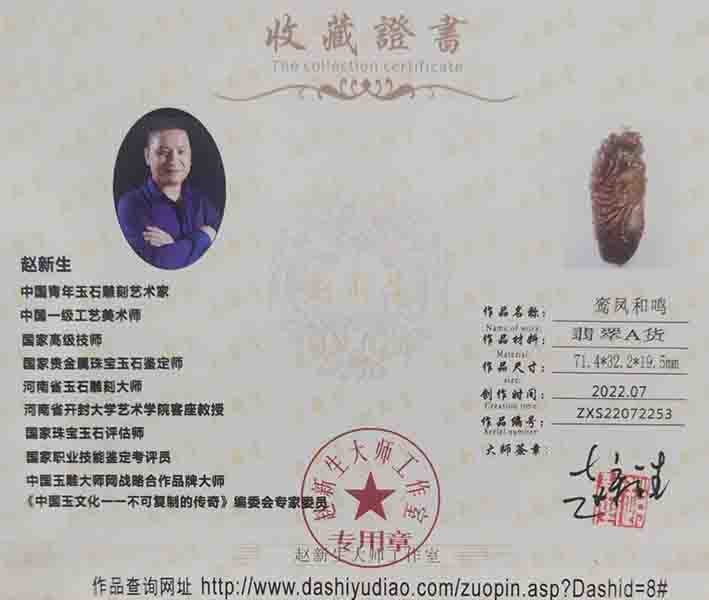 收藏證書
The collection certificate
赵新生
中国青年玉石雕刻艺术家
中国一级工艺美术师
国家高级技师
国家贵金属珠宝玉石鉴定师
河南省玉石雕刻大师
河南省开封大学艺术学院客座教授
国家珠宝玉石评估师
国家职业技能鉴定考评员
中国玉雕大师网战略合作品牌大师
《中国玉文化一一不可复制的传奇》编委会专家委员
作品名称: 鸾凤和鸣
Name of work:
作品材料: 翡翠A货
Material:
作品尺寸: 71.4*32.2*19.5mm
size:
创作时间: 2022.07
Creation time:
作品编号: ZXS22072253
Serial number:
大师签章:
赵新生大师工作室
专用章
赵新生大师工作室
作品查询网址 http://www.dashiyudiao.com/zuopin.asp?Dashid=8#